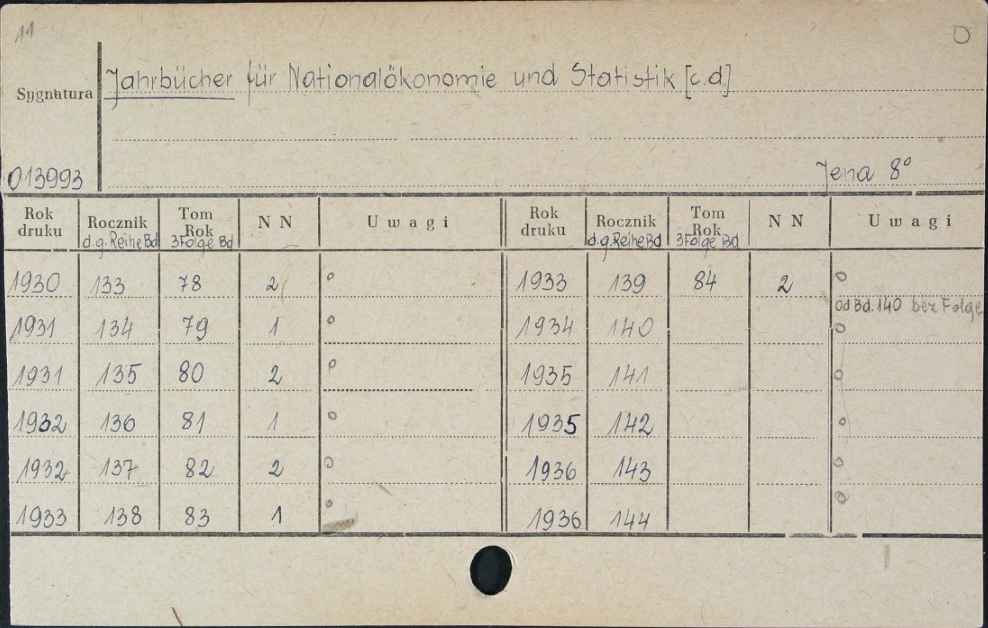 11 O
Jahrbücher für Nationalökonomie und Statistik [c.d]
Sygnatura
013993 Jena 8°
Rok druku Rocznik d.g. Reihe Bd Tom Rok 3 Folge Bd NN Uwagi Rok druku Rocznik d.g. Reihe Bd Tom Rok 3 Folge Bd NN Uwagi
1930 133 78 2 o 1933 139 84 2 o
Od Bd. 140 bez Folge
1931 134 79 1 o 1934 140 o
1931 135 80 2 o 1935 141 o
1932 136 81 1 o 1935 142 o
1932 137 82 2 o 1936 143 o
1933 138 83 1 o 1936 144 o